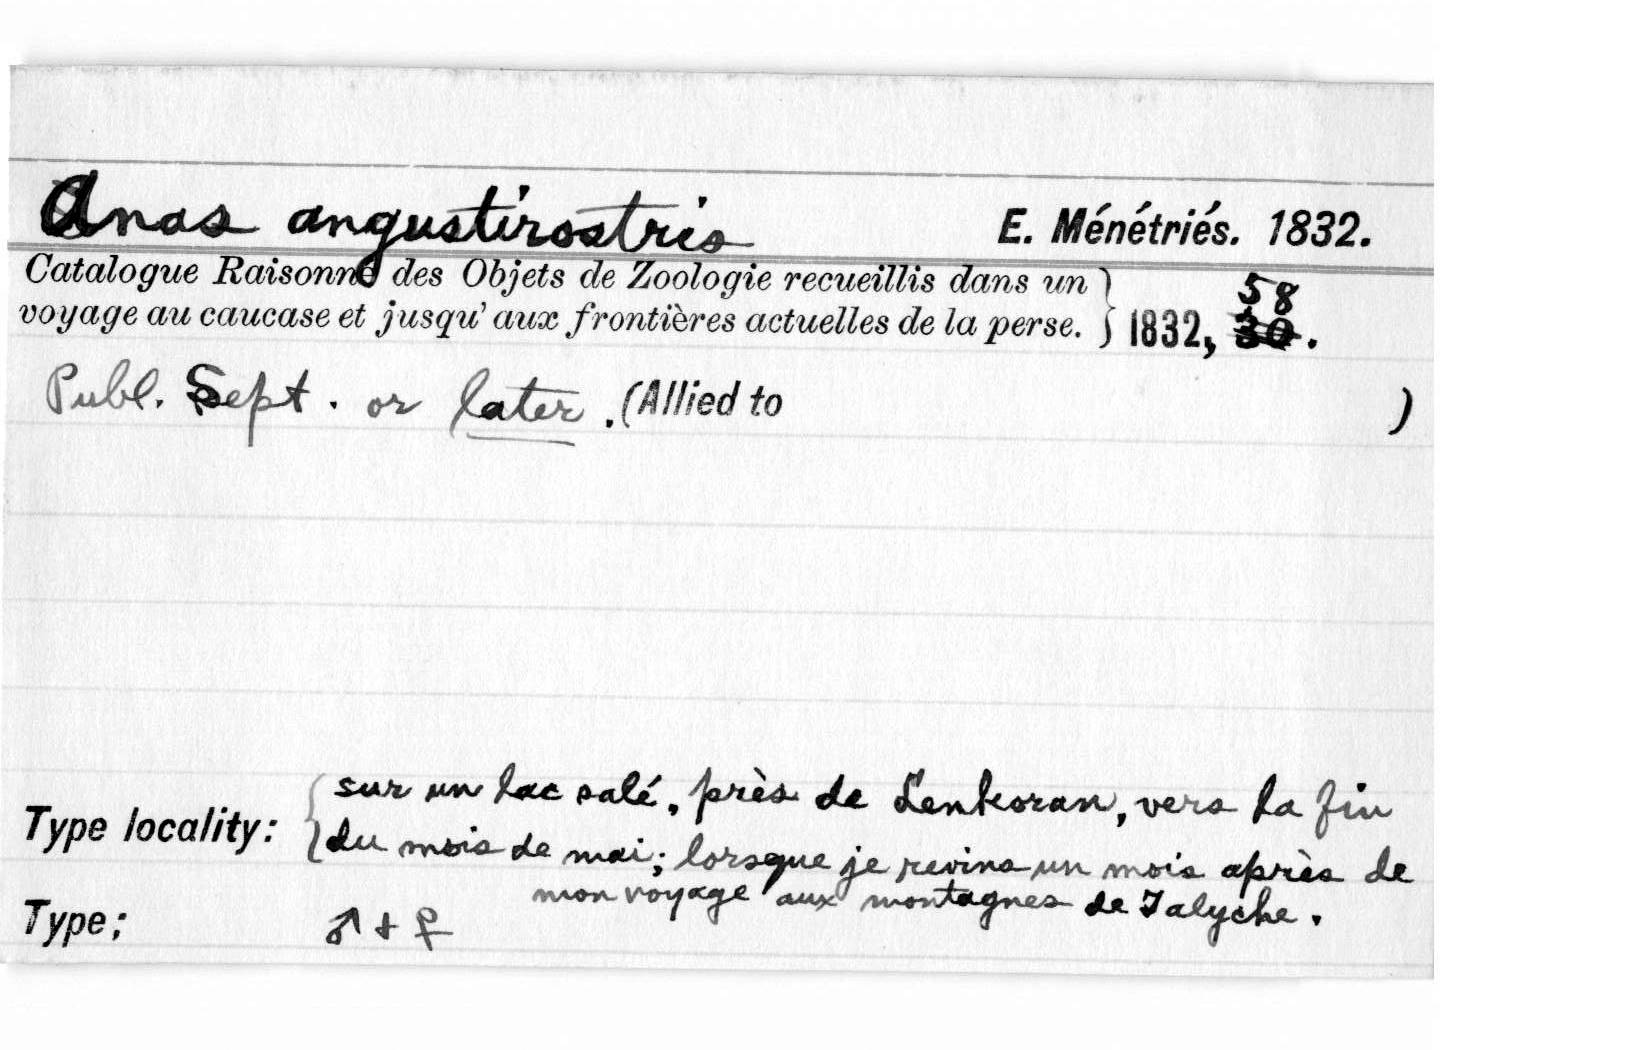 Anas angustirostris E. Ménétriés. 1832.
Catalogue Raisonné des Objets de Zoologie recueillis dans un
voyage au caucase et jusqu' aux frontières actuelles de la perse. } 1832, 30. 58
Publ. Sept. or later. (Allied to )
Type locality: { sur un lac salé, près de Lenkoran, vers la fin
du mois de mai; lorsque je revins un mois après de
mon voyage aux montagnes de Talyche.
Type; ♂ + ♀